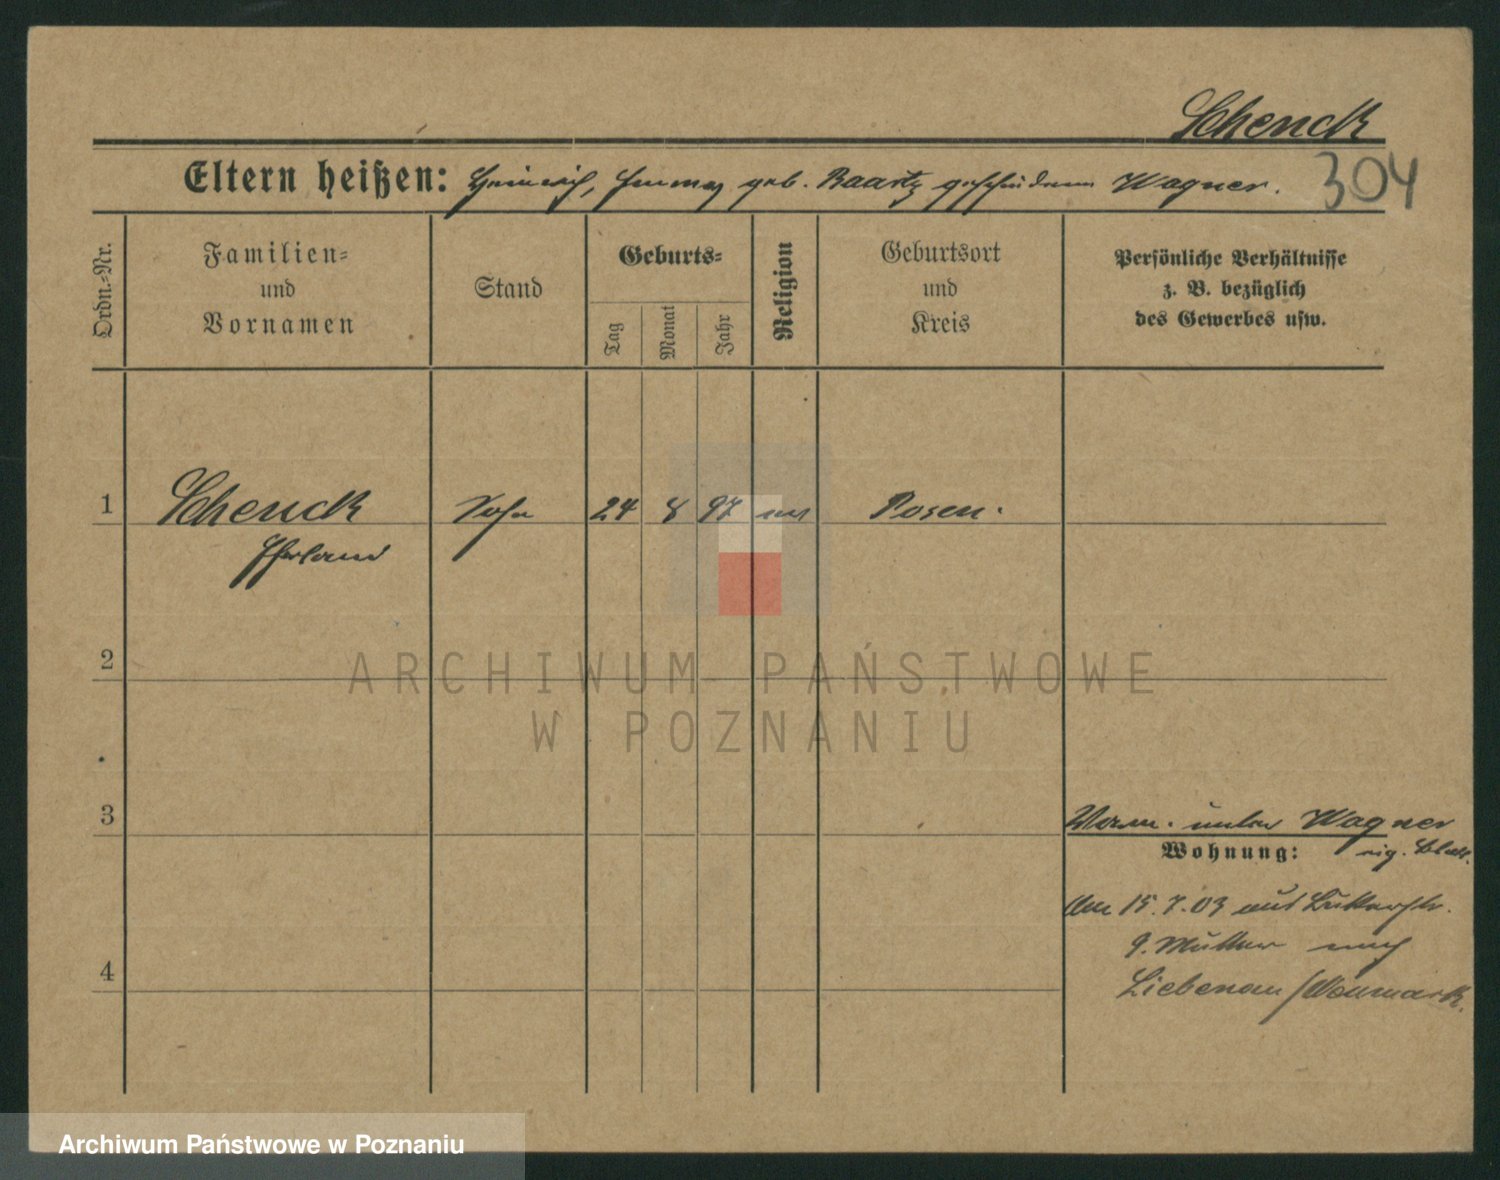 Schenck
304
Eltern heißen: Heinrich, Emma geb. Raartz geschiedene Wagner.
Ordn.-Nr.
Familien-
und
Vornamen
Stand
Geburts-
Tag
Monat
Jahr
Religion
Geburtsort
und
Kreis
Persönliche Verhältnisse
z. B. bezüglich
des Gewerbes usw.
1 Schenck Sohn 24 8 97 Posen.
2
3
Verm. unter Wagner
Wohnung:
eig. Blatt.
Am 15.7.03
9. Mutter nach
Liebenau / Neumark.
4
ARCHIWUM PAŃSTWOWE
W POZNANIU
Archiwum Państwowe w Poznaniu